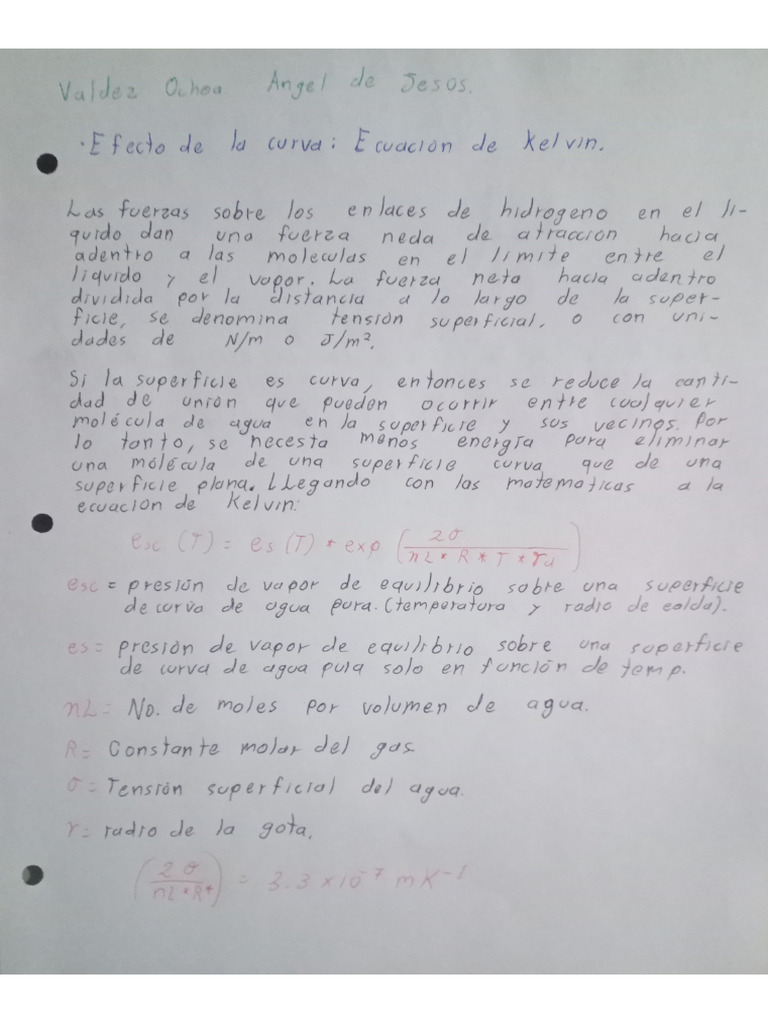 Valdez Ochoa Angel de Jesos.
· Efecto de la curva: Ecuación de Kelvin.
Las fuerzas sobre los enlaces de hidrogeno en el lí-
quido dan una fuerza neda de atracción hacia
adentro a las moleculas en el límite entre el
líquido y el vapor. La fuerza neta hacia adentro
dividida por la distancia a lo largo de la super-
ficie, se denomina tensión superficial, o con uni-
dades de N/m o J/m².
Si la superficie es curva, entonces se reduce la canti-
dad de unión que pueden ocorrir entre cualquier
molécula de agua en la superficie y sus vecinos. Por
lo tanto, se necesita menos energía para eliminar
una molécula de una superficie curva que de una
superficie plana. LLegando con las matematicas a la
ecuación de Kelvin:
esc (T) = es (T) * exp (2σ / nL * R * T * rd)
esc = presión de vapor de equilibrio sobre una superficie
de curva de agua pura. (temperatura y radio de caída).
es = presión de vapor de equilibrio sobre una superficie
de curva de agua pula solo en función de temp.
nL = No. de moles por volumen de agua.
R = Constante molar del gas.
σ = Tensión superficial del agua.
r = radio de la gota.
(2σ / nL * R*) = 3.3 x 10⁻⁷ mK⁻¹